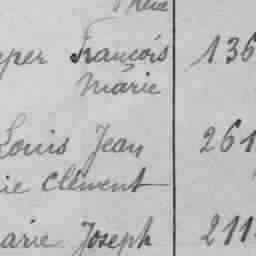 François 136
Marie
Louis Jean 261
Clément
Joseph 211